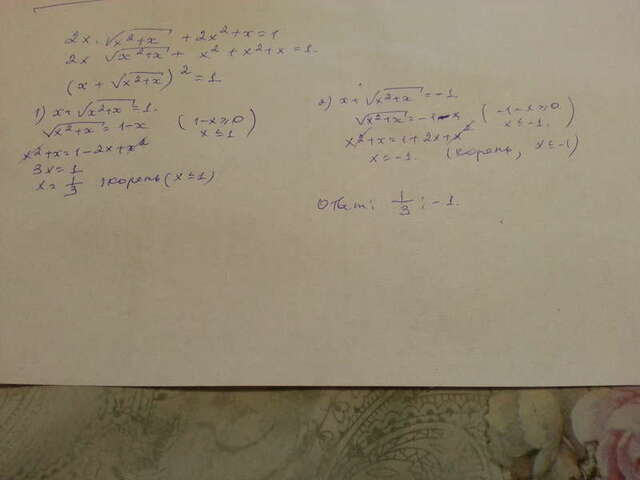 2x · √(x²+x) + 2x² + x = 1
2x √(x²+x) + x² + x² + x = 1.
(x + √(x²+x))² = 1
1) x + √(x²+x) = 1.
√(x²+x) = 1-x (1-x ≥ 0
x ≤ 1)
x² + x = 1 - 2x + x²
3x = 1
x = 1/3 корень (x ≤ 1)
2) x + √(x²+x) = -1
√(x²+x) = -1-x (-1-x ≥ 0.
x ≤ -1.)
x² + x = 1 + 2x + x²
x = -1. (корень, x ≤ -1)
Ответ: 1/3 ; -1.